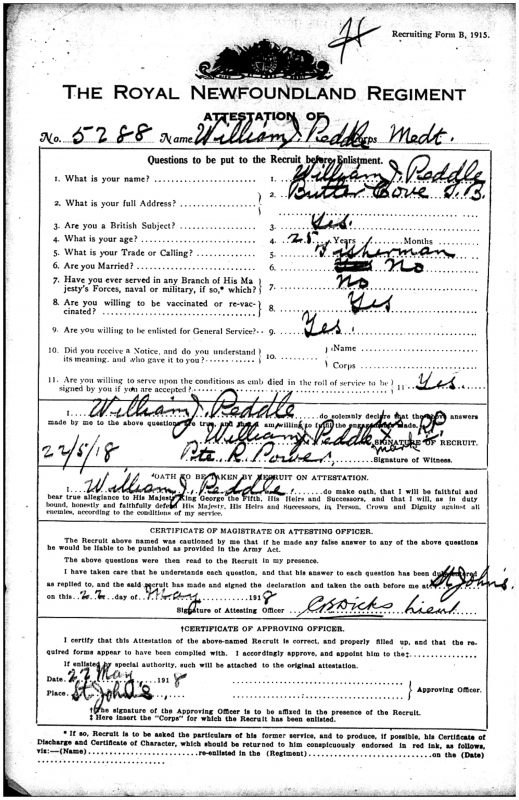 Recruiting Form B, 1915.
THE ROYAL NEWFOUNDLAND REGIMENT
ATTESTATION OF
No. 5288 Name William J. Peddle Corps Medt.
Questions to be put to the Recruit before Enlistment.
1. What is your name? 1. William J Peddle
2. What is your full Address? 2. Butter Cove T.B.
3. Are you a British Subject? 3. Yes.
4. What is your age? 4. 25 Years Months
5. What is your Trade or Calling? 5. Fisherman
6. Are you Married? 6. No
7. Have you ever served in any Branch of His Ma
jesty's Forces, naval or military, if so,* which? 7. No
8. Are you willing to be vaccinated or re-vac-
cinated? 8. Yes
9. Are you willing to be enlisted for General Service? 9. Yes.
10. Did you receive a Notice, and do you understand
its meaning, and who gave it to you? 10. Name
Corps
11. Are you willing to serve upon the conditions as emb died in the roll of service to be
signed by you if you are accepted? 11 Yes.
I William J. Peddle do solemnly declare that the above answers
made by me to the above questions are true, and that I am willing to fulfil the engagements made.
William J Peddle mark SIGNATURE OF RECRUIT.
22/5/18 Pte R. Power Signature of Witness.
*OATH TO BE TAKEN BY RECRUIT ON ATTESTATION.
I William J. Peddle do make oath, that I will be faithful and
bear true allegiance to His Majesty King George the Fifth, His Heirs and Successors, and that I will, as in duty
bound, honestly and faithfully defend His Majesty, His Heirs and Successors, in Person, Crown and Dignity against all
enemies, according to the conditions of my service.
CERTIFICATE OF MAGISTRATE OR ATTESTING OFFICER.
The Recruit above named was cautioned by me that if he made any false answer to any of the above questions
he would be liable to be punished as provided in the Army Act.
The above questions were then read to the Recruit in my presence.
I have taken care that he understands each question, and that his answer to each question has been duly entered
as replied to, and the said recruit has made and signed the declaration and taken the oath before me at St John's
on this 22 day of May 1918
Signature of Attesting Officer C B Dicks Lieut
†CERTIFICATE OF APPROVING OFFICER.
I certify that this Attestation of the above-named Recruit is correct, and properly filled up, and that the re-
quired forms appear to have been complied with. I accordingly approve, and appoint him to the‡
If enlisted by special authority, such will be attached to the original attestation.
Date 22 May 1918
Place St John's Approving Officer.
†The signature of the Approving Officer is to be affixed in the presence of the Recruit.
‡ Here insert the "Corps" for which the Recruit has been enlisted.
* If so, Recruit is to be asked the particulars of his former service, and to produce, if possible, his Certificate of
Discharge and Certificate of Character, which should be returned to him conspicuously endorsed in red ink, as follows,
viz:—(Name) re-enlisted in the (Regiment) on the (Date)